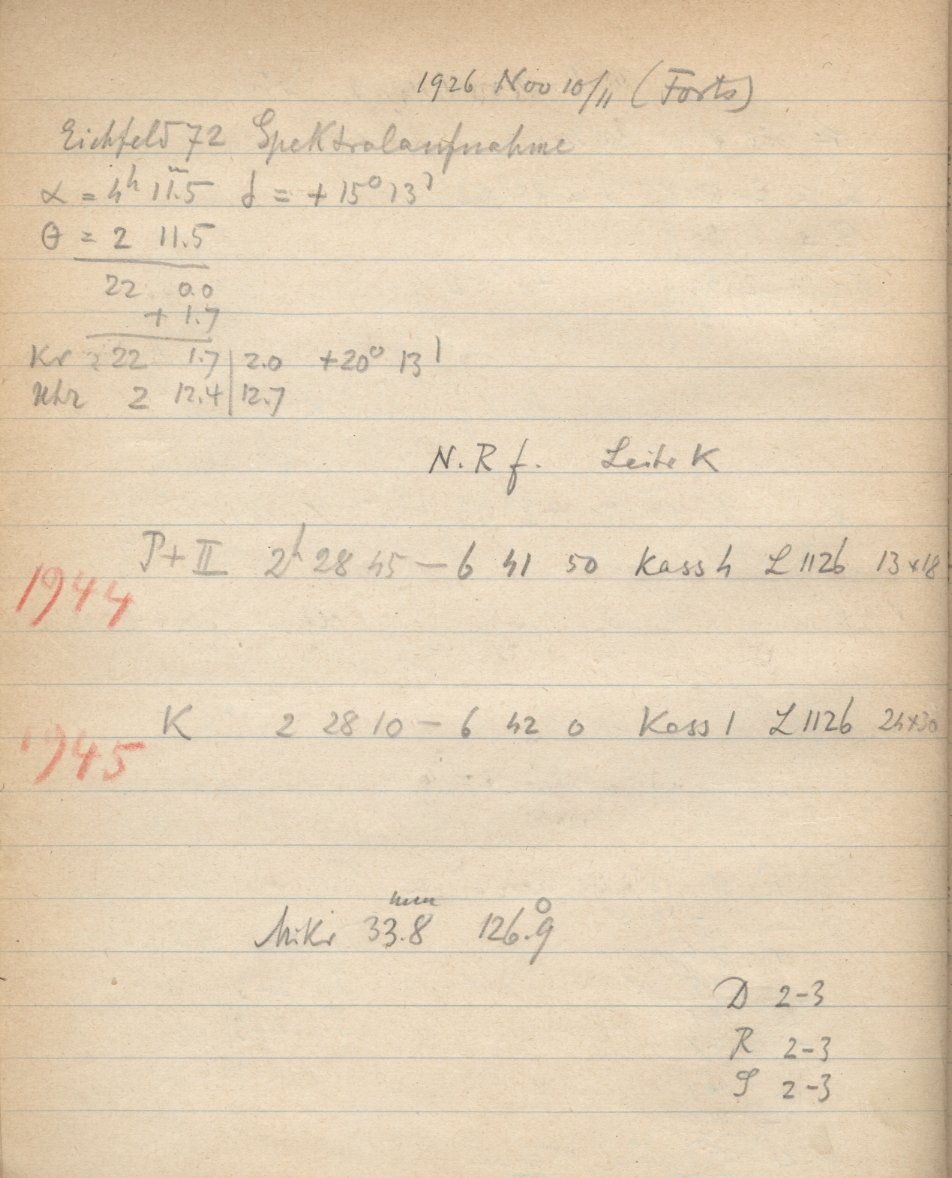 1926 Nov 10/11 (Forts)
Eichfeld 72 Spektralaufnahme
α = 4h 11m.5 δ = +15° 13'
θ = 2 11.5
22 0.0
+ 1.7
Kr = 22 1.7 | 2.0 +20° 13'
Uhr 2 12.4 | 12.7
N. R f. Leite K
P+II 2h 28 45 — 6 41 50 Kass 4 L 1126 13×18
1944
K 2 28 10 — 6 42 0 Kass 1 L 1126 24×30
1945
Mikr 33.8 mm 126.°9
D 2-3
R 2-3
S 2-3